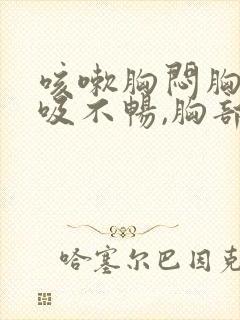 咳嗽胸悶胸
吸不暢,胸部
哈塞尔巴因克